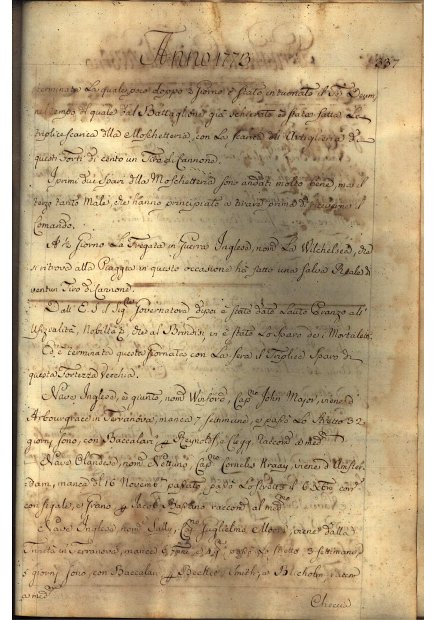 Anno 1773
337
terminata La quale, poco doppo ½ giorno è stato intuonato il Te Deum,
nel tempo di quale dal Battaglione già schierato è stata fatta La
triplice scarica della Moschetteria, con La scarica di Artiglieria di
questi Forti di cento un Tiro di Cannone.
I primi due Spari della Moschetteria sono andati molto bene, ma il
terzo tanto Male, che hanno principiato a tirare prima di il
Comando.
A ½ Giorno La Fregata in Guerra Inglese, nom La Wilchelsea, che
si ritrova alla Piaggia in questo occasione ha fatto una Salva Reale di
ventun Tiro di Cannone.
Dall E. S. il Sig Governatore Dipoi è stato dato Lauto Pranzo all
Uffizialità, Nobiltà &, che al Brindisi, vi è stato Lo Sparo dei Mortaletti.
Ed è terminata questa Giornata con La sera il Triplice Sparo di
questa Fortezza Vecchia.
Nave Inglese, è giunta, nom Winford, Cap John Major, viene d
in Terranova, manca 7 settimane, e passò Lo Stretto 32
giorni sono, con Baccalari, Reynolds, e
Nave Olandese, nom Nettuno, Cap Cornelis Kraay, viene d Amster
dam, manca dal 16 Novembre passato, passò Lo Stretto il 6 corr
con segale, e Grano Jacob raccom al med
Nave Inglese nom Judy, Cap Guglielmo Moore, viene dalla
in Terranova, manca passò Lo Stretto 3 settimane,
5 giorni sono, con Baccalari Becker, Smith, a
a med